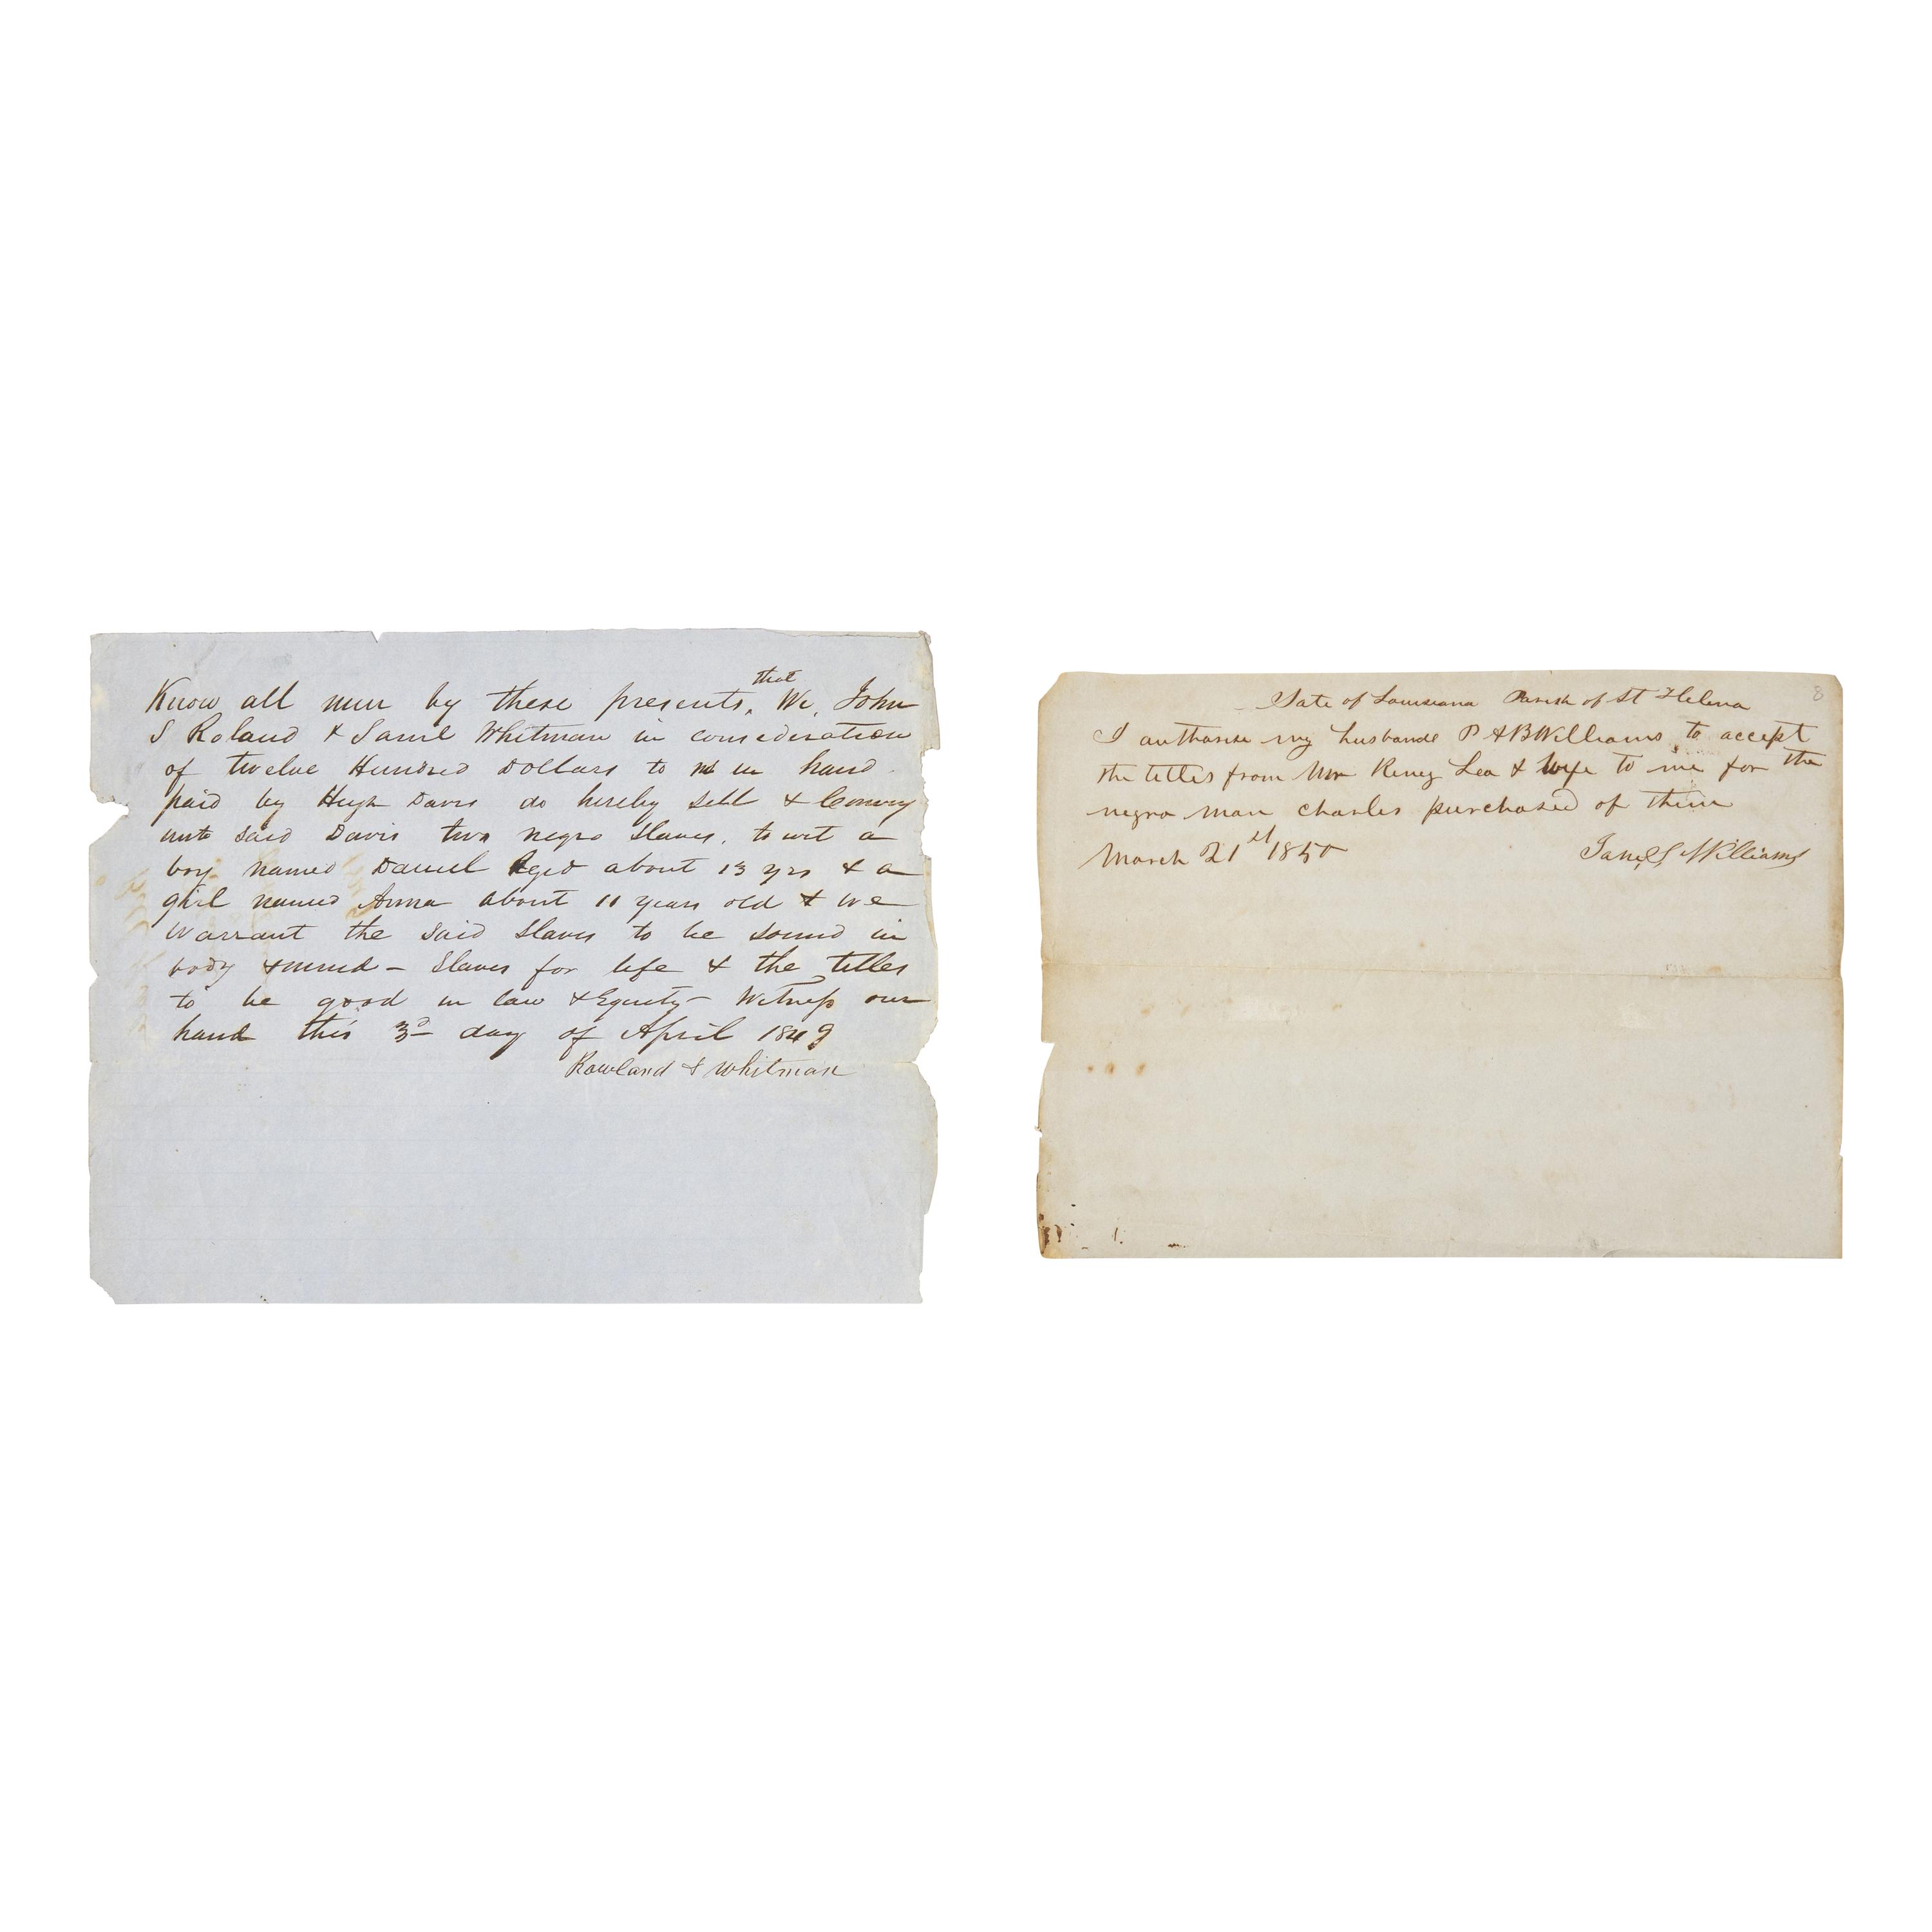 Know all men by these presents, that We, John
S Roland & Saml Whitman in consideration
of twelve Hundred Dollars to us in hand
paid by Hugh Davis do hereby sell & Convey
unto said Davis two negro slaves, to wit a
boy named Daniel Aged about 13 yrs & a
girl named Anna about 11 years old & we
warrant the said slaves to be sound in
body & mind - Slaves for life & the titles
to be good in law & Equity - Witness our
hand this 3d day of April 1849
Rowland & Whitman
8
State of Louisiana Parish of St Helena
I authorise my husbande P A B Williams to accept
the titles from Mr Lea & wife to me for the
negro man charles purchased of them
March 21st 1850
Williams